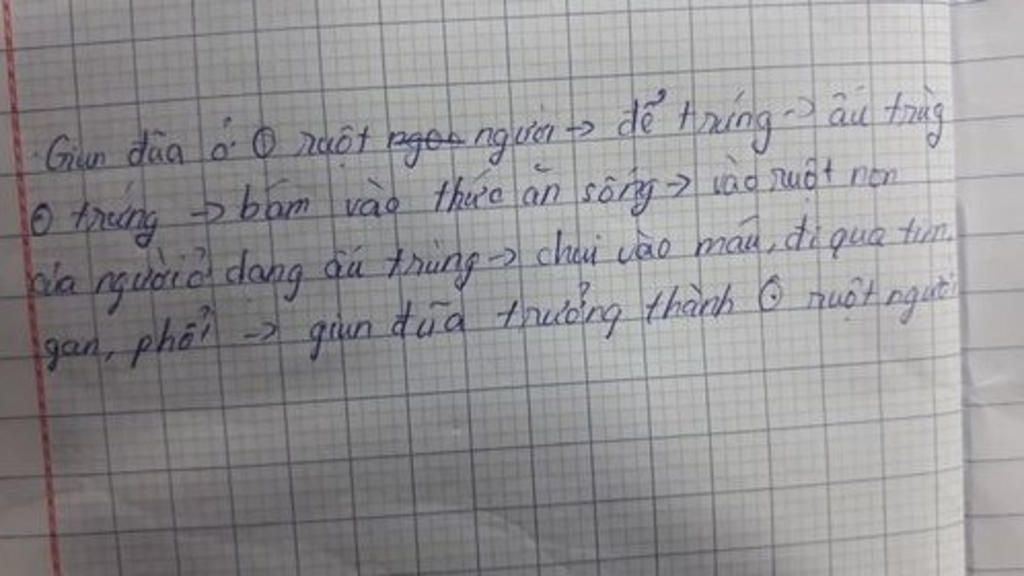 Giun đũa ở ⊙ ruột ngoo người → đẻ trứng → ấu trùg
⊙ trứng → bám vào thức ăn sống → vào ruột non
của người ở dạng ấu trùng → chui vào máu, đi qua tim,
gan, phổi → giun đũa trưởng thành ⊙ ruột người